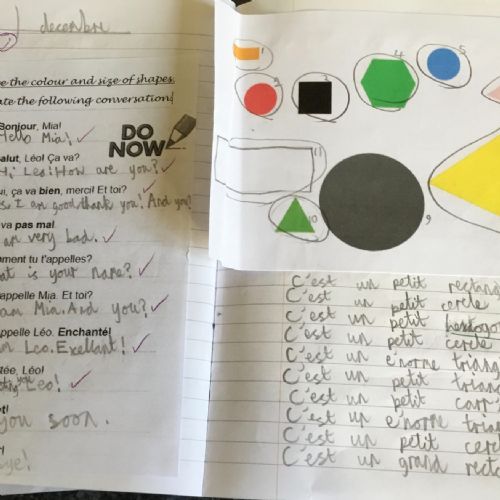 decembre
e the colour and size of shapes.
ate the following conversation:
Bonjour, Mia!
Hello Mia!
DO
NOW
alut, Léo! Ça va?
Hi, Leo! How are you?
i, ça va bien, merci! Et toi?
s, I am good thank you! And you?
va pas mal
am very bad.
mment tu t'appelles?
at is your name?
appelle Mia. Et toi?
am Mia. And you?
ppelle Léo. Enchanté!
m Leo. Exellant!
tée, Léo!
you Leo!
t!
you soon.
r!
ye!
1
4
5
2
3
11
10
9
C'est un petit rectang
C'est un petit cercle
C'est un petit
C'est un petit cercle
C'est un énorme triang
C'est un petit trian
C'est un petit carr
C'est un énorme trian
C'est un petit cerc
C'est un grand rect